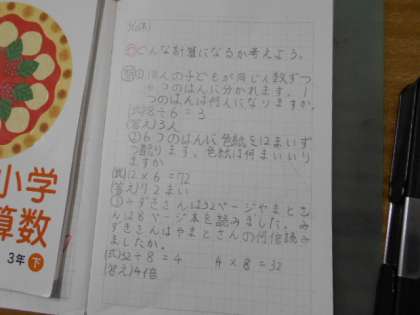 小学
算数
3年 下
どんな計算になるか考えよう。
① 18人の子どもが同じ人数ずつ
6つのはんに分かれます。1
つのはんは何人になりますか。
(式)18÷6=3
(答え)3人
②6つのはんに色紙を12まいず
つ配ります。色紙は何まいいり
ますか
(式)12×6=72
(答え)72まい
③みずきさんは32ページやまとさ
んは8ページ本を読みました。み
ずきさんはやまとさんの何倍読み
ましたか。
(式)32÷8=4 4×8=32
(答え)4倍